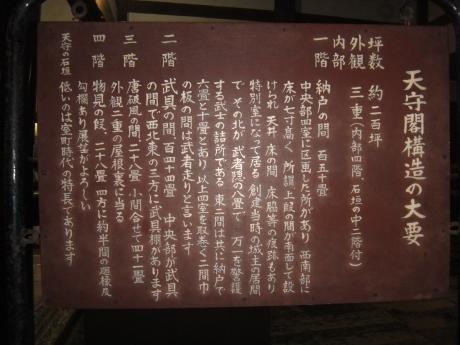 天守閣構造の大要
坪数 約二百坪
外観 三重(内部四階、石垣の中二階付)
内部
一階 納戸の間 百五十畳
中央部四室に区画した所があり 西南部に
床が七寸高く 所謂上段の間が南面して設
けられ 天井 床の間 床脇等の痕跡もあり
特別室になって居る 創建当時の城主の居間
で その北が 武者隠の八畳で 万一を警護
する武士の詰所である 東二間は共に納戸で
六畳と十畳とあり 以上四室を取巻く二間巾
の板の間は武者走りと言います
二階 武具の間 百四十四畳 中央部が武具
の間で西北東の三方に武具棚があります
三階 唐破風の間 二十八畳 小間合せ 四十二畳
外観二重の屋根裏に当る
四階 物見の段 二十八畳 四方に約半間の廻椽及
勾欄あり展望がよろしい
天守の石垣 低いのは室町時代の特長であります